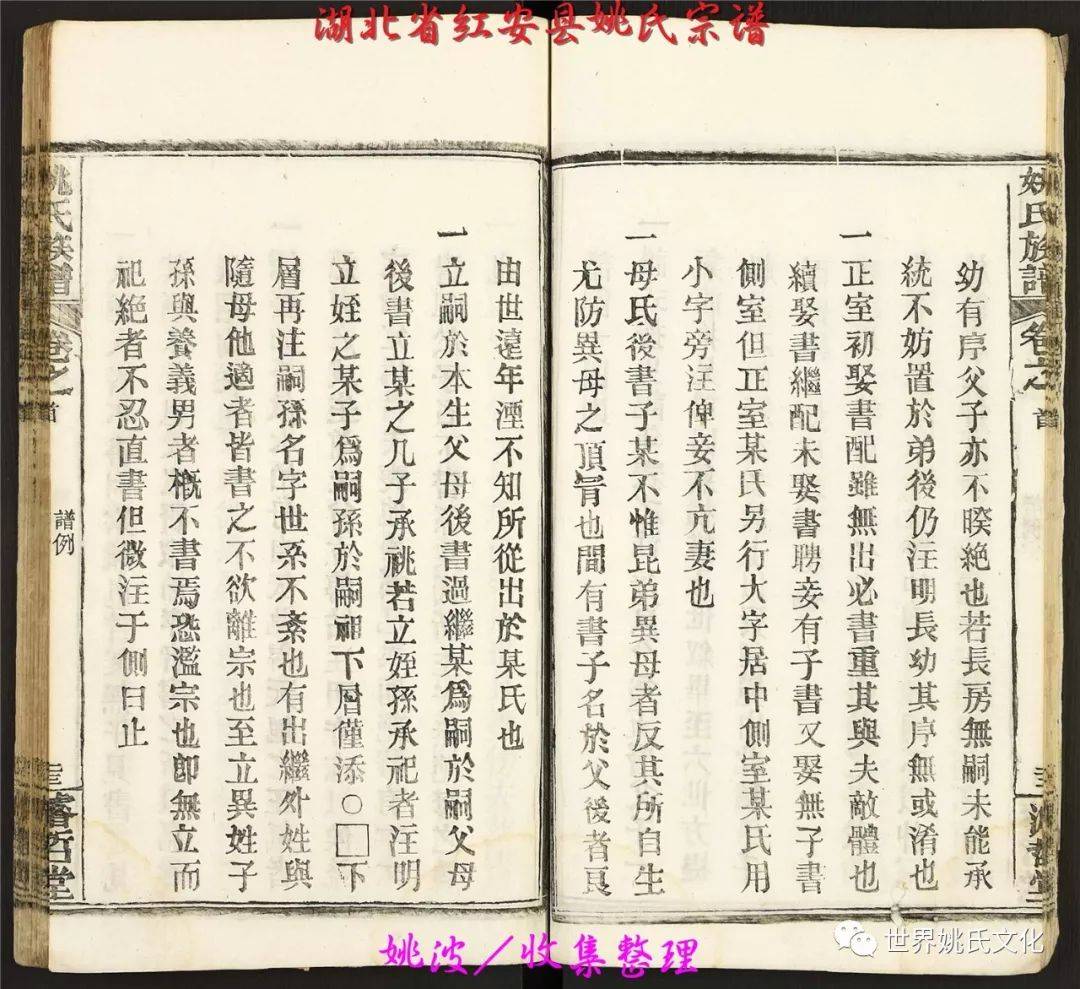 湖北省红安县姚氏宗谱
姚氏族譜
首
幼有序父子亦不暌絶也若長房無嗣未能承
統不妨置於弟後仍注明長幼其序無或淆也
一正室初娶書配雖無出必書重其與夫敵體也
續娶書繼配未娶書聘妾有子書又娶無子書
側室但正室某氏另行大字居中側室某氏用
小字旁注俾妾不亢妻也
一母氏後書子某不惟昆弟異母者反其所自生
尤防異母之頂冒也間有書子名於父後者良
由世遠年湮不知所從出於某氏也
一立嗣於本生父母後書過繼某爲嗣於嗣父母
後書立某之几子承祧若立姪孫承祀者注明
立姪之某子爲嗣孫於嗣祖下層僅添○□下
層再注嗣孫名字世系不紊也有出繼外姓與
隨母他適者皆書之不欲離宗也至立異姓子
孫與養義男者概不書焉恐濫宗也卽無立而
祀絶者不忍直書但微注于側曰止
姚氏族譜
卷之
首
譜例
濬哲堂
姚波／收集整理
世界姚氏文化